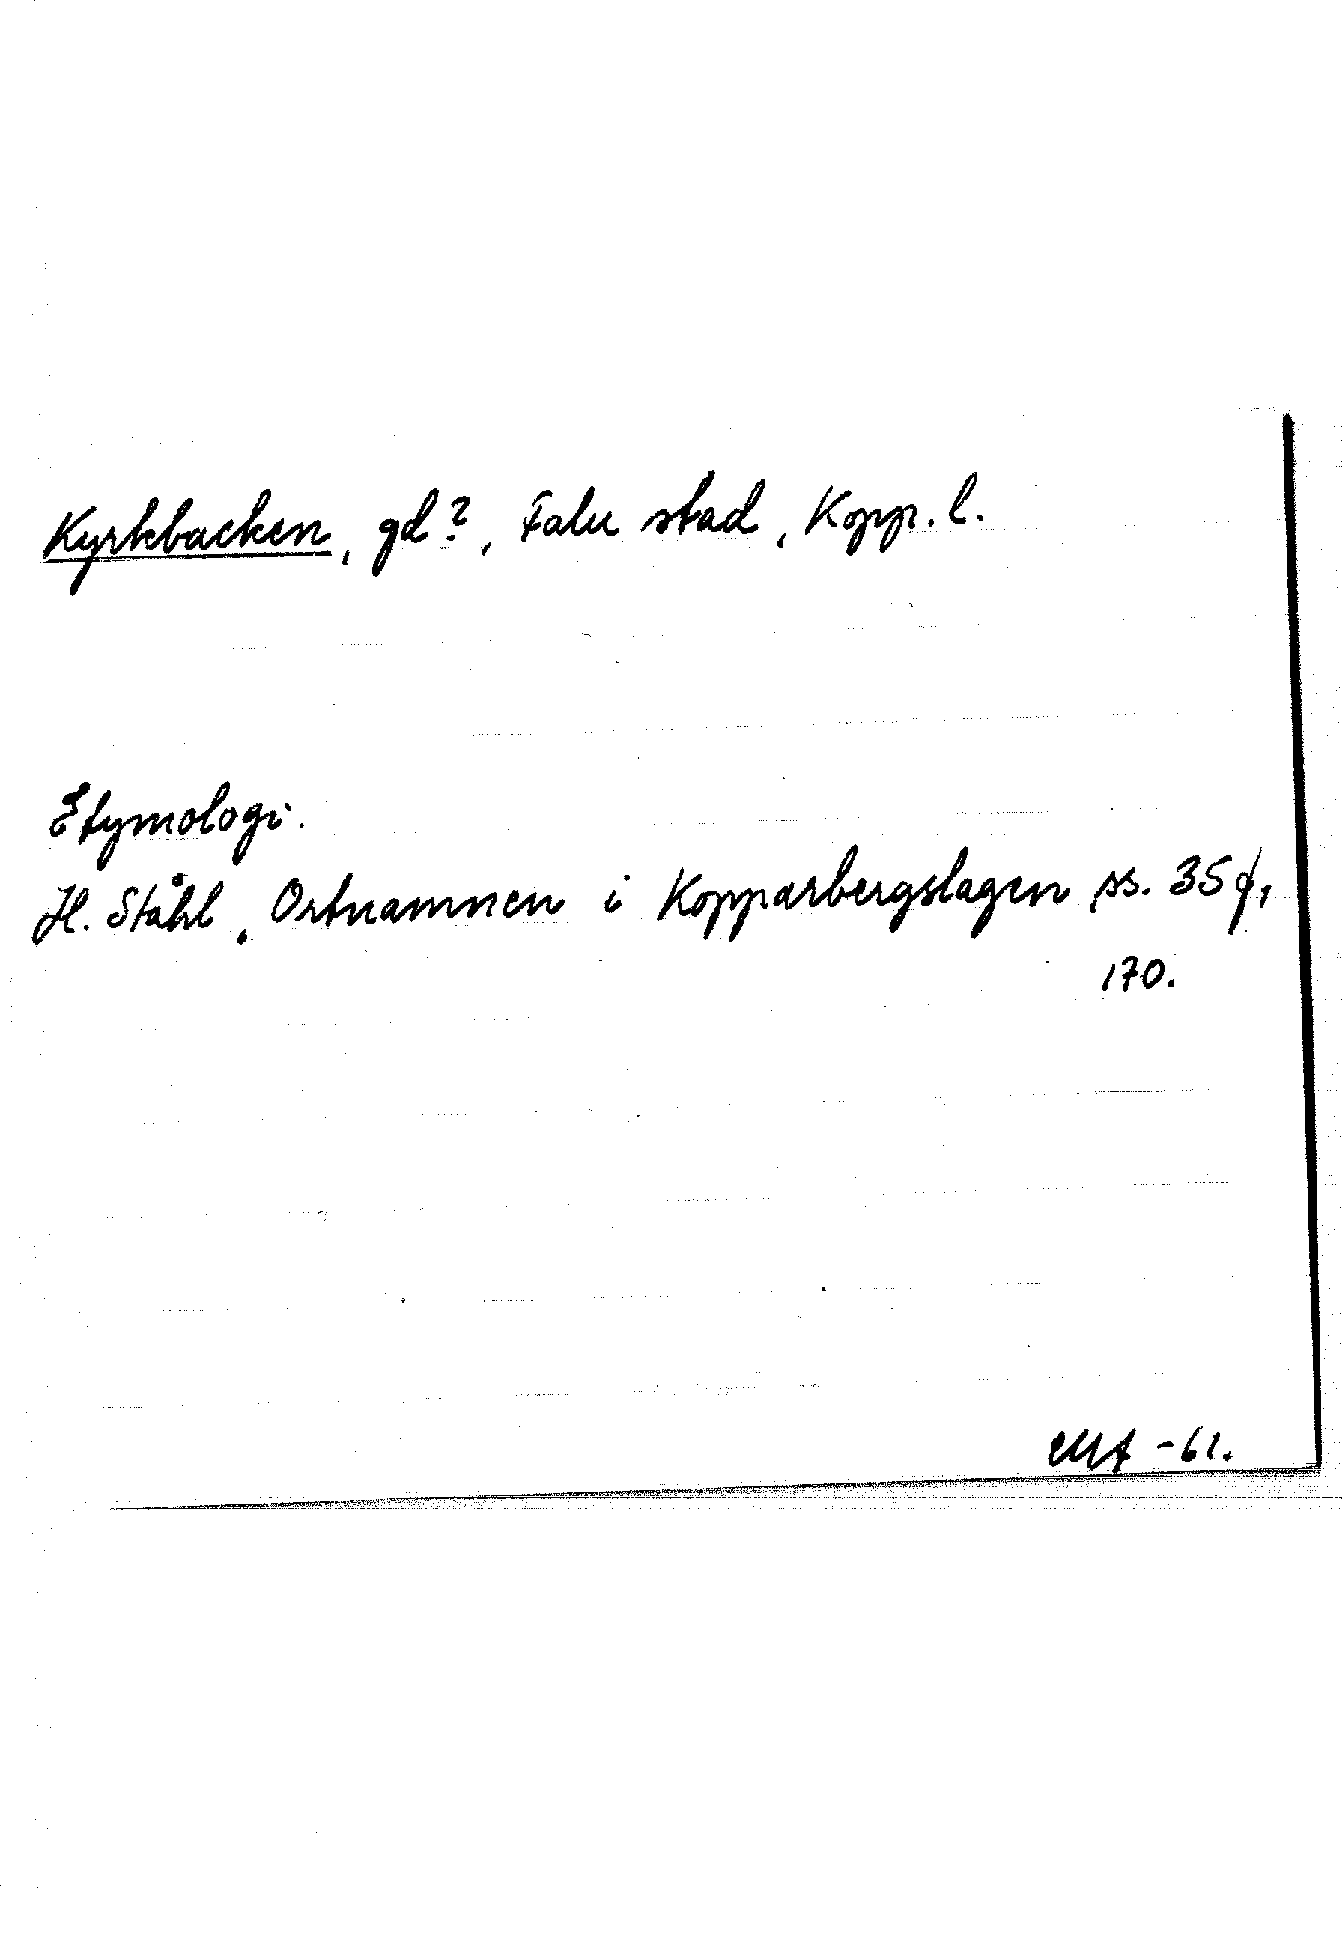 Kyrkbacken, gd?, Falu stad, Kopp. l.
Etymologi.
H. Ståhl, Ortnamnen i Kopparbergslagen ss. 35 f,
170.
MA -61.